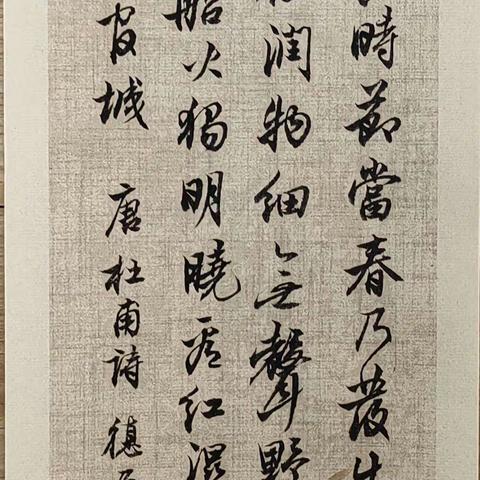 時節當春乃發生
潤物細無聲野
船火獨明曉看紅濕
官城 唐杜甫詩 德